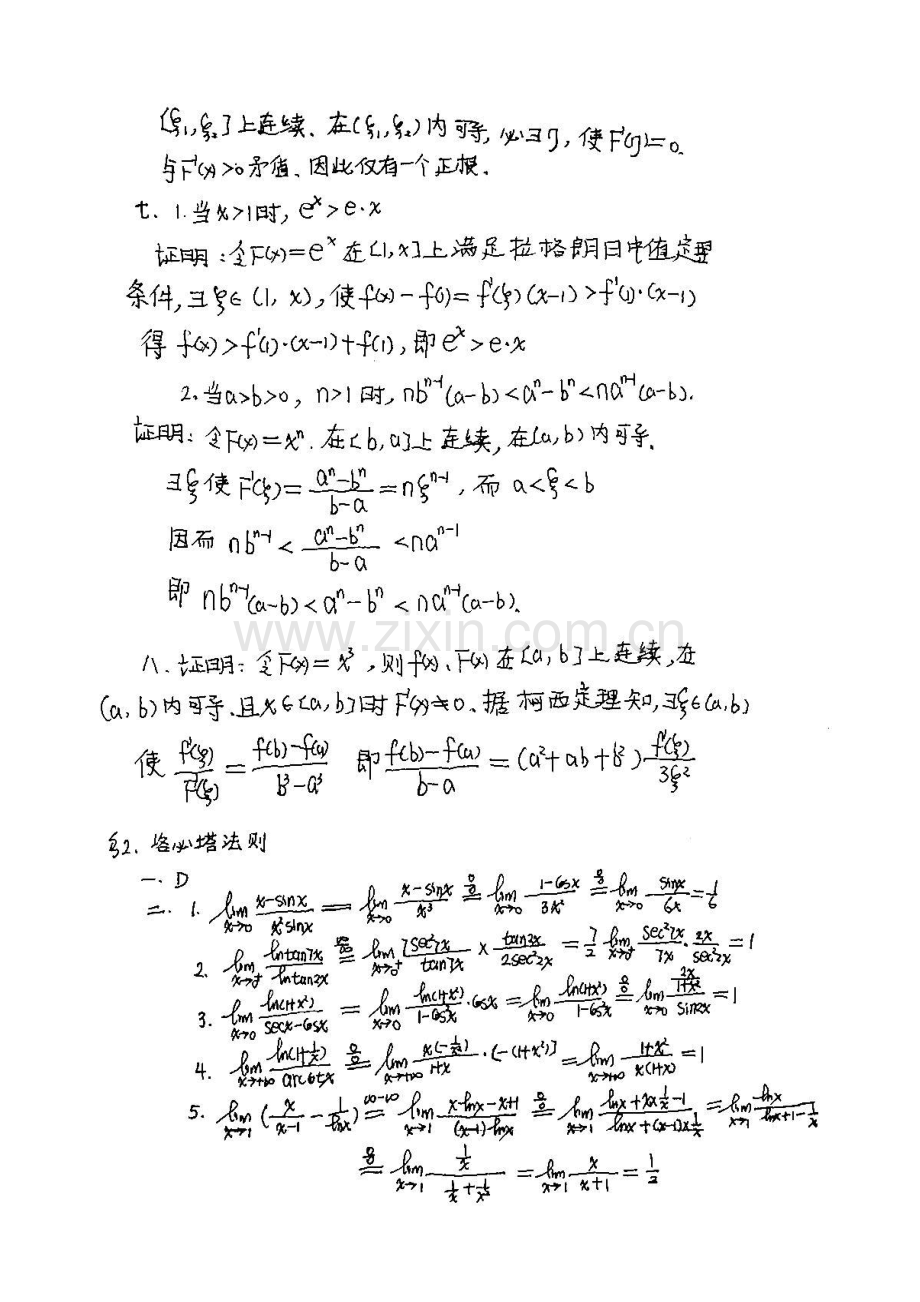 [ξ₁,ξ₂]上连续、在(ξ₁,ξ₂)内可导,必∃η,使F'(η)=0.
与F'(x)>0矛盾、因此仅有一个正根.
七、1.当x>1时, eˣ>e·x
证明:令F(x)=eˣ在[1,x]上满足拉格朗日中值定理
条件,∃ξ∈(1,x),使f(x)-f(1)=f'(ξ)(x-1)>f'(1)·(x-1)
得 f(x)>f'(1)·(x-1)+f(1),即eˣ>e·x
2.当a>b>0, n>1时, nbⁿ⁻¹(a-b)<aⁿ-bⁿ<naⁿ⁻¹(a-b).
证明:令F(x)=xⁿ.在[b,a]上连续,在(a,b)内可导.
∃ξ使F'(ξ)=(aⁿ-bⁿ)/(b-a)=nξⁿ⁻¹,而 a<ξ<b
因而 nbⁿ⁻¹<(aⁿ-bⁿ)/(b-a)<naⁿ⁻¹
即 nbⁿ⁻¹(a-b)<aⁿ-bⁿ<naⁿ⁻¹(a-b).
www.zixin.com.cn
八、证明:令F(x)=x³,则f(x)、F(x)在[a,b]上连续,在
(a,b)内可导.且x∈[a,b]时F'(x)≠0、据柯西定理知,∃ξ∈(a,b)
使 f'(ξ)/F'(ξ)=(f(b)-f(a))/(b³-a³) 即 (f(b)-f(a))/(b-a)=(a²+ab+b²)f'(ξ)/3ξ²
§2.洛必塔法则
一、D
二.1. lim(x→0) (x-sinx)/(x²sinx) = lim(x→0) (x-sinx)/x³ =(0/0) lim(x→0) (1-cosx)/3x² =(0/0) lim(x→0) sinx/6x=1/6
2. lim(x→0⁺) lntan7x/lntan2x =(∞/∞) lim(x→0⁺) 7sec²7x/tan7x × tan2x/2sec²2x =7/2 lim(x→0⁺) sec²7x/7x·2x/sec²2x=1
3. lim(x→0) ln(1+x²)/(secx-cosx) = lim(x→0) ln(1+x²)/(1-cos²x)·cosx = lim(x→0) ln(1+x²)/(1-cos²x) =(0/0) lim(x→0) (2x/(1+x²))/sin2x=1
4. lim(x→+∞) ln(1+1/x)/arccotx =(0/0) lim(x→+∞) x(-1/x²)/(1+x)·[-(1+x²)] = lim(x→+∞) (1+x²)/(x(1+x))=1
5. lim(x→1) (x/(x-1)-1/lnx) =(∞-∞) lim(x→1) (x·lnx-x+1)/((x-1)·lnx) =(0/0) lim(x→1) (lnx+x×1/x-1)/(lnx+(x-1)×1/x) = lim(x→1) lnx/(lnx+1-1/x)
=(0/0) lim(x→1) (1/x)/(1/x+1/x²) = lim(x→1) x/(x+1)=1/2